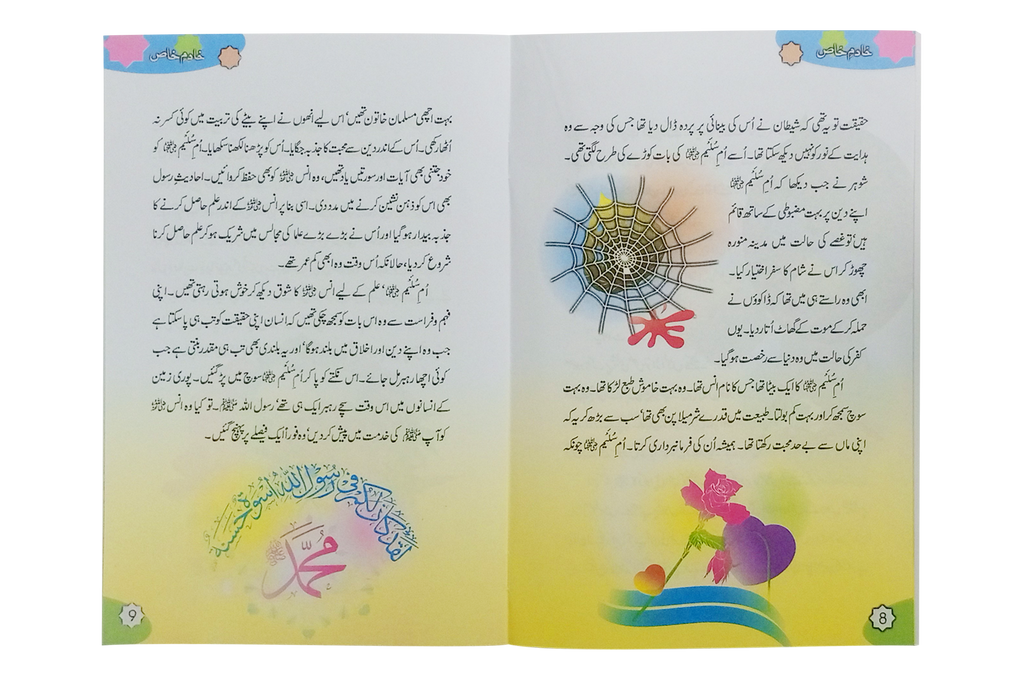 خادم خاص
حقیقت تو یہ تھی کہ شیطان نے اُس کی بینائی پر پردہ ڈال دیا تھا جس کی وجہ سے وہ
ہدایت کے نور کو نہیں دیکھ سکتا تھا۔ اُسے اُمِ سُلَیم رضی اللہ عنہا کی بات کوڑے کی طرح لگتی تھی۔
شوہر نے جب دیکھا کہ اُمِ سُلَیم رضی اللہ عنہا
اپنے دین پر بہت مضبوطی کے ساتھ قائم
ہیں‘ تو غصے کی حالت میں مدینہ منورہ
چھوڑ کر اس نے شام کا سفر اختیار کیا۔
ابھی وہ راستے ہی میں تھا کہ ڈاکوؤں نے
حملہ کر کے موت کے گھاٹ اُتار دیا۔ یوں
کفر کی حالت میں وہ دنیا سے رخصت ہو گیا۔
اُمِ سُلَیم رضی اللہ عنہا کا ایک بیٹا تھا جس کا نام انس تھا۔ وہ بہت خاموش طبع لڑکا تھا۔ وہ بہت
سوچ سمجھ کر اور بہت کم بولتا۔ طبیعت میں قدرے شرمیلا پن بھی تھا‘ سب سے بڑھ کر یہ کہ
اپنی ماں سے بے حد محبت رکھتا تھا۔ ہمیشہ اُن کی فرمانبرداری کرتا۔ اُمِ سُلَیم رضی اللہ عنہا چونکہ
8
خادم خاص
بہت اچھی مسلمان خاتون تھیں‘ اس لیے انھوں نے اپنے بیٹے کی تربیت میں کوئی کسر نہ
اُٹھا رکھی۔ اُس کے اندر دین سے محبت کا جذبہ جگایا۔ اُس کو پڑھنا لکھنا سکھایا۔ اُمِ سُلَیم رضی اللہ عنہا کو
خود جتنی بھی آیات اور سورتیں یاد تھیں، وہ انس رضی اللہ عنہ کو بھی حفظ کروائیں۔ احادیثِ رسول
بھی اس کو ذہن نشین کرنے میں مدد دی۔ اسی بنا پر انس رضی اللہ عنہ کے اندر علم حاصل کرنے کا
جذبہ بیدار ہو گیا اور اُس نے بڑے بڑے علما کی مجالس میں شریک ہو کر علم حاصل کرنا
شروع کر دیا، حالانکہ اُس وقت وہ ابھی کم عمر تھے۔
اُمِ سُلَیم رضی اللہ عنہا‘ علم کے لیے انس رضی اللہ عنہ کا شوق دیکھ کر خوش ہوتی رہتی تھیں۔ اپنی
فہم و فراست سے وہ اس بات کو سمجھ چکی تھیں کہ انسان اپنی حقیقت کو تب ہی پا سکتا ہے
جب وہ اپنے دین اور اخلاق میں بلند ہو گا‘ اور یہ بلندی بھی تب ہی مقدر بنتی ہے جب
کوئی اچھا رہبر مل جائے۔ اس نکتے کو پا کر اُمِ سُلَیم رضی اللہ عنہا سوچ میں پڑ گئیں۔ پوری زمین
کے انسانوں میں اس وقت سچے رہبر ایک ہی تھے‘ رسول اللہ ﷺ۔ تو کیا وہ انس رضی اللہ عنہ
کو آپ ﷺ کی خدمت میں پیش کر دیں‘ وہ فوراً ایک فیصلے پر پہنچ گئیں۔
لقد كان لكم في رسول الله أسوة حسنة
محمد ﷺ
9